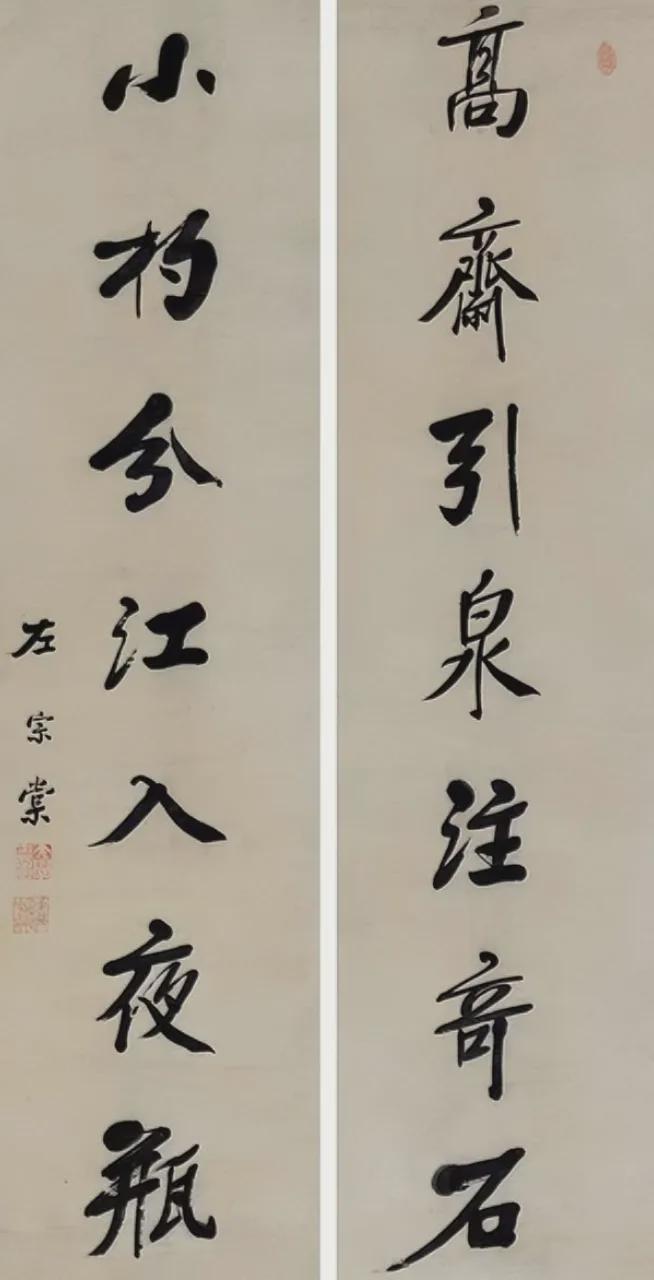 髙齋引泉注竒石
小杓分江入夜瓶
左宗棠